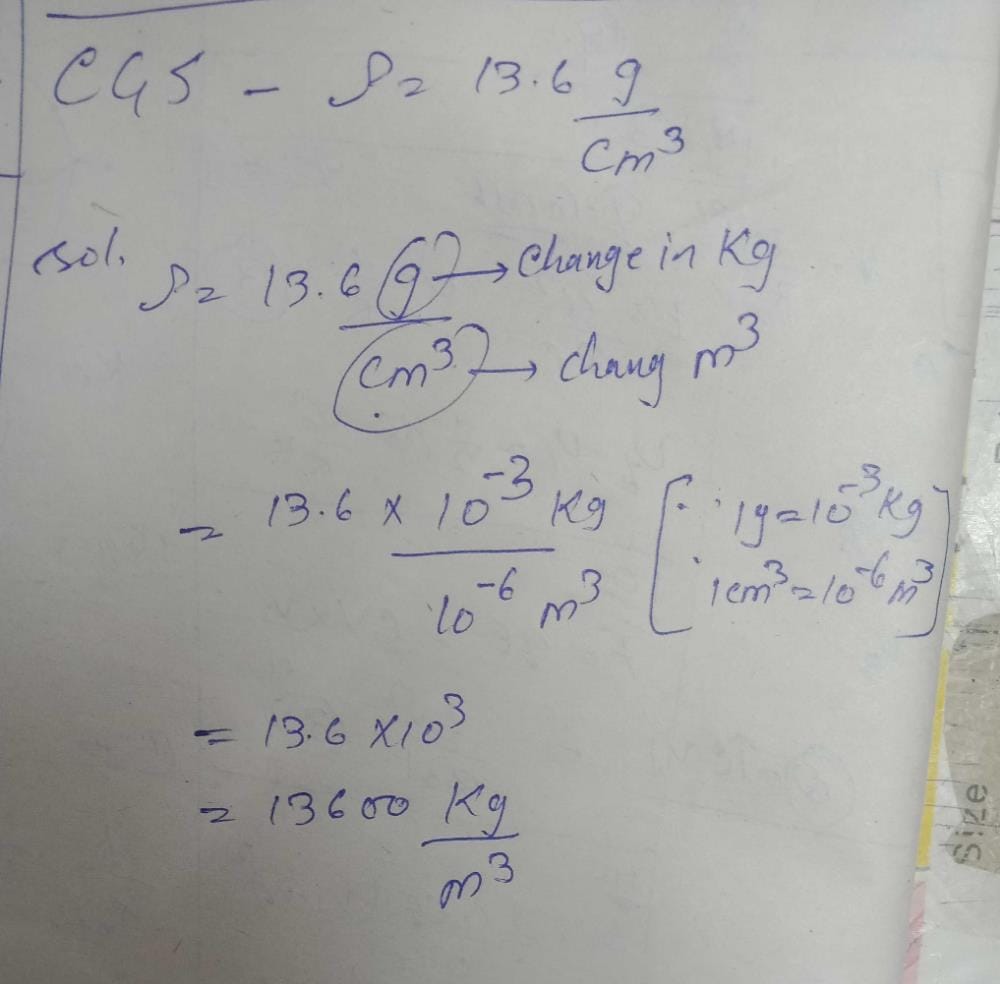 CGS - ρ = 13.6 g/cm³
sol. ρ = 13.6 g → Change in Kg
cm³ → chang m³
= 13.6 × 10⁻³ Kg / 10⁻⁶ m³ [∵ 1g = 10⁻³ Kg
1cm³ = 10⁻⁶ m³]
= 13.6 × 10³
= 13600 Kg/m³
Size